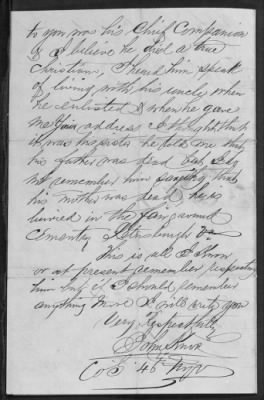 to you was his Chief Companion
& I believe he died a true
Christian, I heard him speak
of living with his uncle, when
he enlisted & when he gave
me your address I thought that
it was his sister he told me that
his father was dead but I do
not remember him saying that
his mother was dead, he is
buried in the fair ground
Cementry Petersburgh Va
This is all I Know
or at present remember respecting
him but if I should remember
anything more I will write you
Very Respectfully
John
Co 46